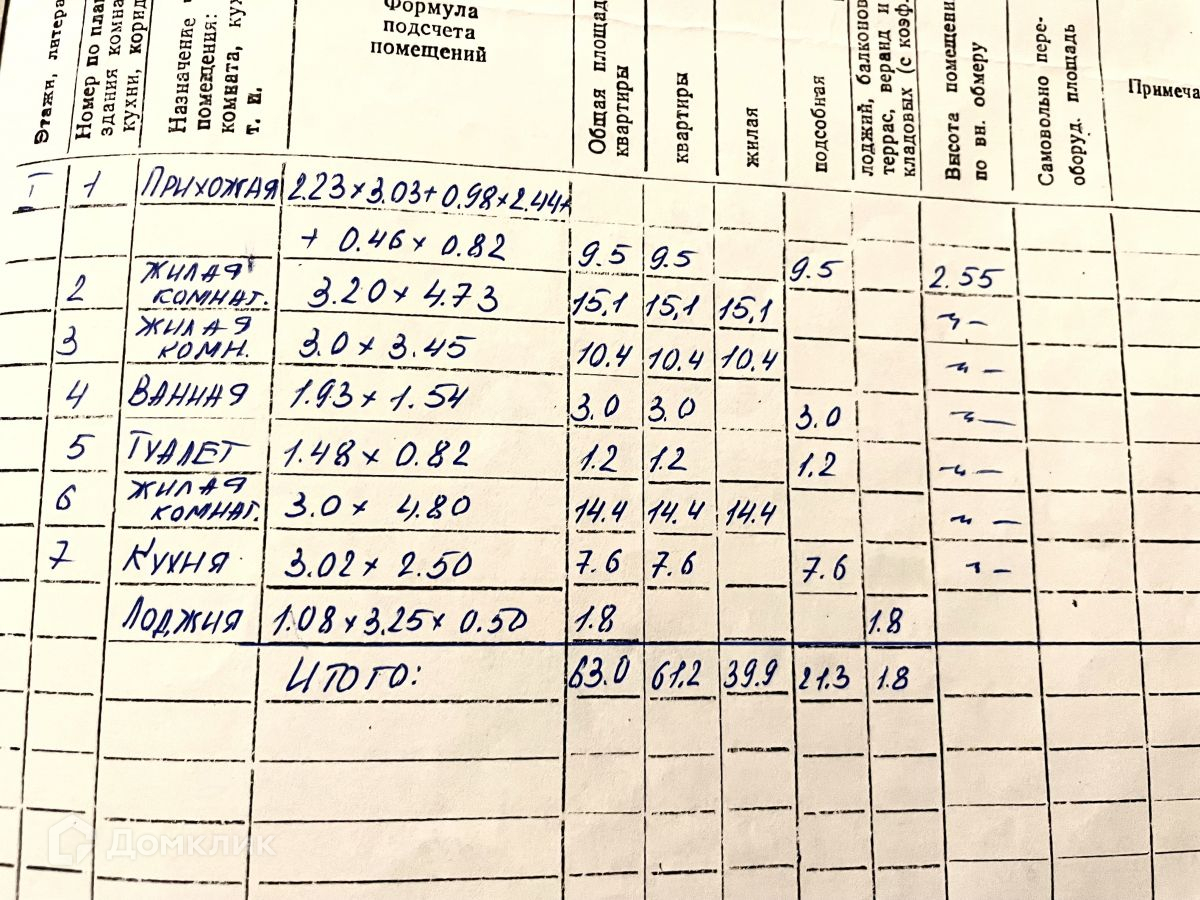 Этажи, литера
Номер по план
здания комна
кухни, корид
Назначение
помещения:
комната, кух
т. п.
Формула
подсчета
помещений
Общая площад
квартиры
квартиры
жилая
подсобная
лоджий, балконов
террас, веранд и
кладовых (с коэф.
Высота помещени
по вн. обмеру
Самовольно пере-
оборуд. площадь
Примеча
I 1 ПРИХОЖАЯ 2.23×3.03+0.98×2.44+
+ 0.46×0.82 9.5 9.5 9.5 2.55
2 ЖИЛАЯ КОМНАТ. 3.20×4.73 15,1 15,1 15,1 -"-
3 ЖИЛАЯ КОМН. 3.0×3.45 10.4 10.4 10.4 -"-
4 ВАННАЯ 1.93×1.54 3.0 3.0 3.0 -"-
5 ТУАЛЕТ 1.48×0.82 1.2 1.2 1.2 -"-
6 ЖИЛАЯ КОМНАТ. 3.0× 4.80 14.4 14.4 14.4 -"-
7 КУХНЯ 3.02×2.50 7.6 7.6 7.6 -"-
ЛОДЖИЯ 1.08×3.25×0.50 1.8 1.8
ИТОГО: 63.0 61.2 39.9 21.3 1.8
Домклик